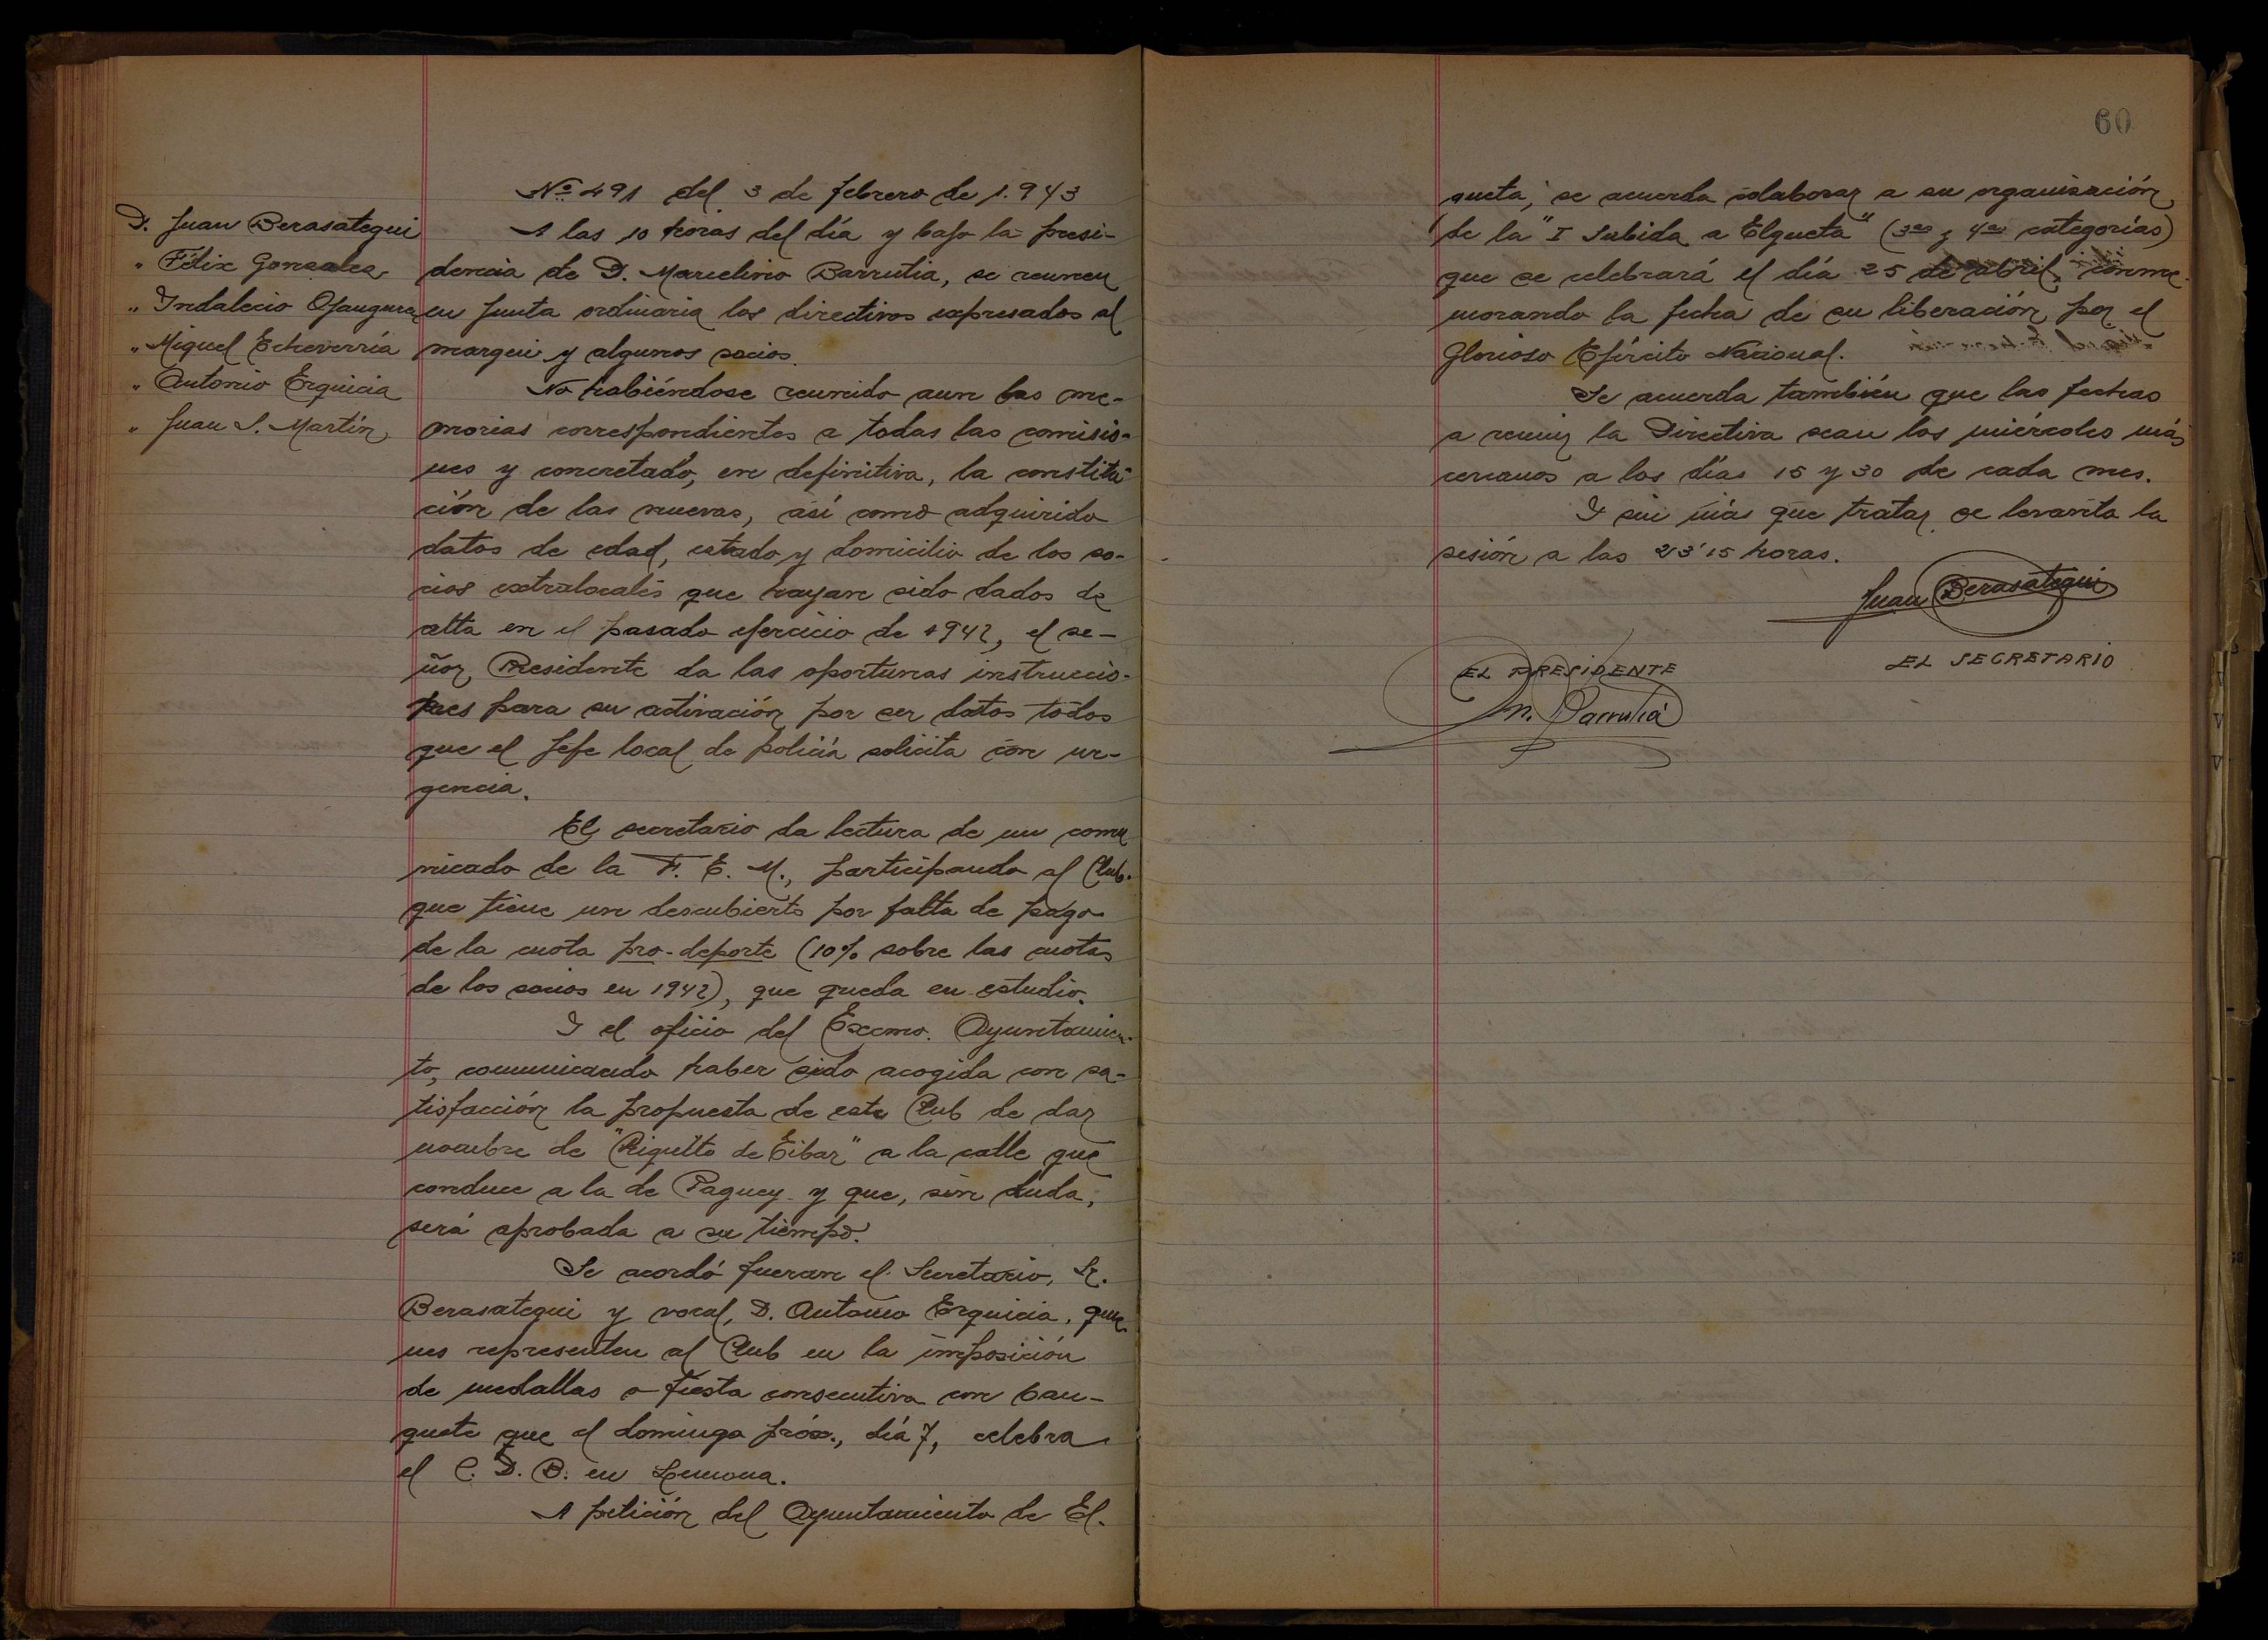 Nº 491 del 3 de febrero de 1.943
D. Juan Berasategui
" Félix Gonzalez
" Indalecio Ojanguren
" Miguel Echeverría
" Antonio Erquicia
" Juan S. Martín
A las 10 horas del día y bajo la presi-
dencia de D. Marcelino Barrutia, se reunen
en Junta ordinaria los directivos expresados al
margen y algunos socios.
No habiéndose reunido aun las me-
morias correspondientes a todas las comisio-
nes y concretado, en definitiva, la constitu-
ción de las nuevas, así como adquirido
datos de edad, estado y domicilio de los so-
cios extralocales que hayan sido dados de
alta en el pasado ejercicio de 1942, el se-
ñor Presidente da las oportunas instruccio-
nes para su activación por ser datos todos
que el Jefe local de policía solicita con ur-
gencia.
El secretario da lectura de un comu
nicado de la F. E. M., participando al Club
que tiene un descubierto por falta de pago
de la cuota pro-deporte (10% sobre las cuotas
de los socios en 1942), que queda en estudio.
Y el oficio del Excmo. Ayuntamien-
to, comunicando haber sido acogida con sa-
tisfacción la propuesta de este Club de dar
nombre de "Piquete de Eibar" a la calle que
conduce a la de Paguey y que, sin duda,
será aprobada a su tiempo.
Se acordó fueran el Secretario, Sr.
Berasategui y vocal, D. Antonio Erquicia, quie
nes representen al Club en la imposición
de medallas o fiesta consecutiva con ban-
quete que el domingo próx., día 7, celebra
el C. D. B. en Lemona.
A petición del Ayuntamiento de El-
60
gueta, se acuerda colaborar a su organización
de la "I Subida a Elgueta" (3as y 4as categorías)
que se celebrará el día 25 de abril, conme-
morando la fecha de su liberación por el
Glorioso Ejército Nacional.
Se acuerda también que las fechas
a reunir la Directiva sean los miércoles más
cercanos a los días 15 y 30 de cada mes.
Y sin más que tratar se levanta la
sesión a las 23'15 horas.
Juan Berasategui
EL SECRETARIO
EL PRESIDENTE
M. Barrutia